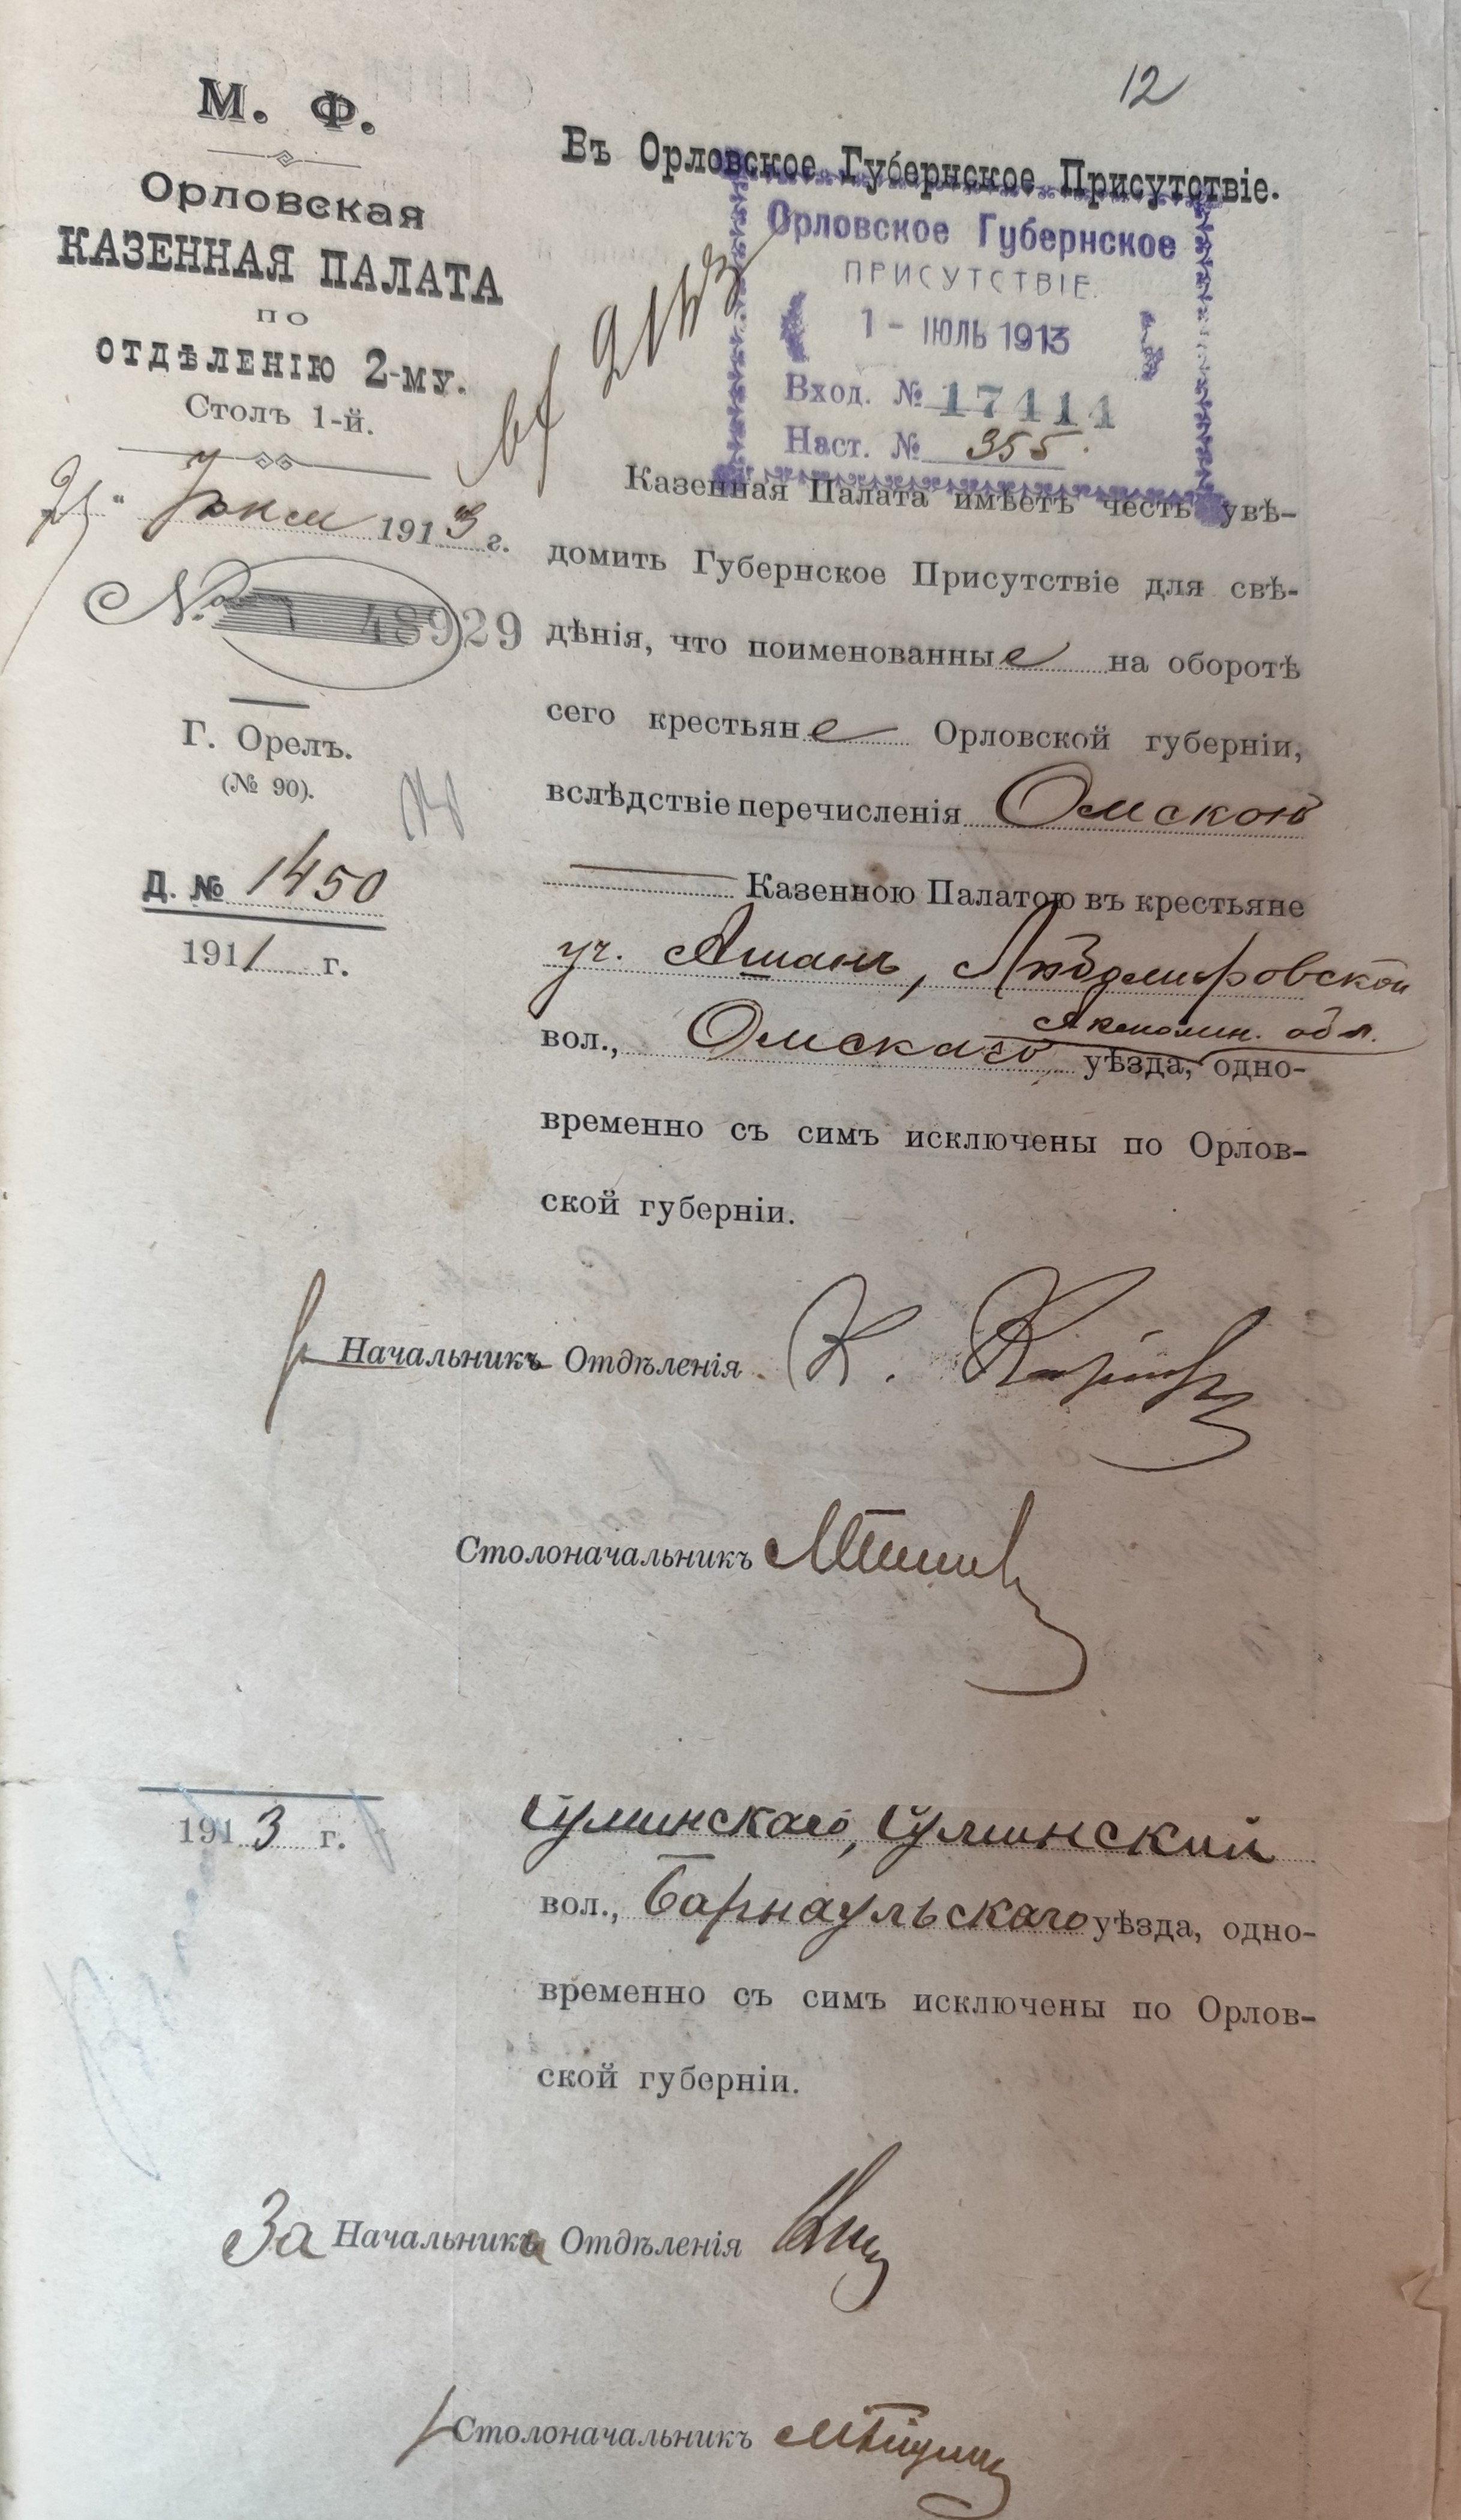 12
М. Ф.
Орловская
КАЗЕННАЯ ПАЛАТА
по
отдѣленію 2-му.
Столъ 1-й.
1913 г.
№ 48929
Г. Орелъ.
(№ 90).
Д. № 1450
1911 г.
Въ Орловское Губернское Присутствіе.
Орловское Губернское
ПРИСУТСТВІЕ.
1 - ІЮЛЬ 1913
Вход. № 17414
Наст. № 355.
Казенная Палата имѣетъ честь увѣ-
домить Губернское Присутствіе для свѣ-
дѣнія, что поименованные на оборотѣ
сего крестьяне Орловской губерніи,
вслѣдствіе перечисленія Омскою
Казенною Палатою въ крестьяне
уч. Ашанъ, Любомировской
вол., Омскаго уѣзда, Акмолин. обл. одно-
временно съ симъ исключены по Орлов-
ской губерніи.
Начальникъ Отдѣленія К.
Столоначальникъ
1913 г.
Суминскаго, Суминский
вол., Барнаульскаго уѣзда, одно-
временно съ симъ исключены по Орлов-
ской губерніи.
За Начальника Отдѣленія
Столоначальникъ